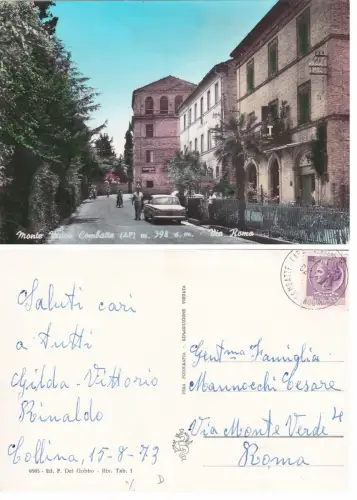 Monte Vidon Combatte (AP) m. 393 s. m. - Via Roma
Saluti cari
a tutti
Gilda - Vittorio
Rinaldo
Collina, 15-8-73
Gent.ma Famiglia
Mannocchi Cesare
Via Monte Verde 4
Roma
Ed. P. Del Gobbo - Riv. Tab. 1